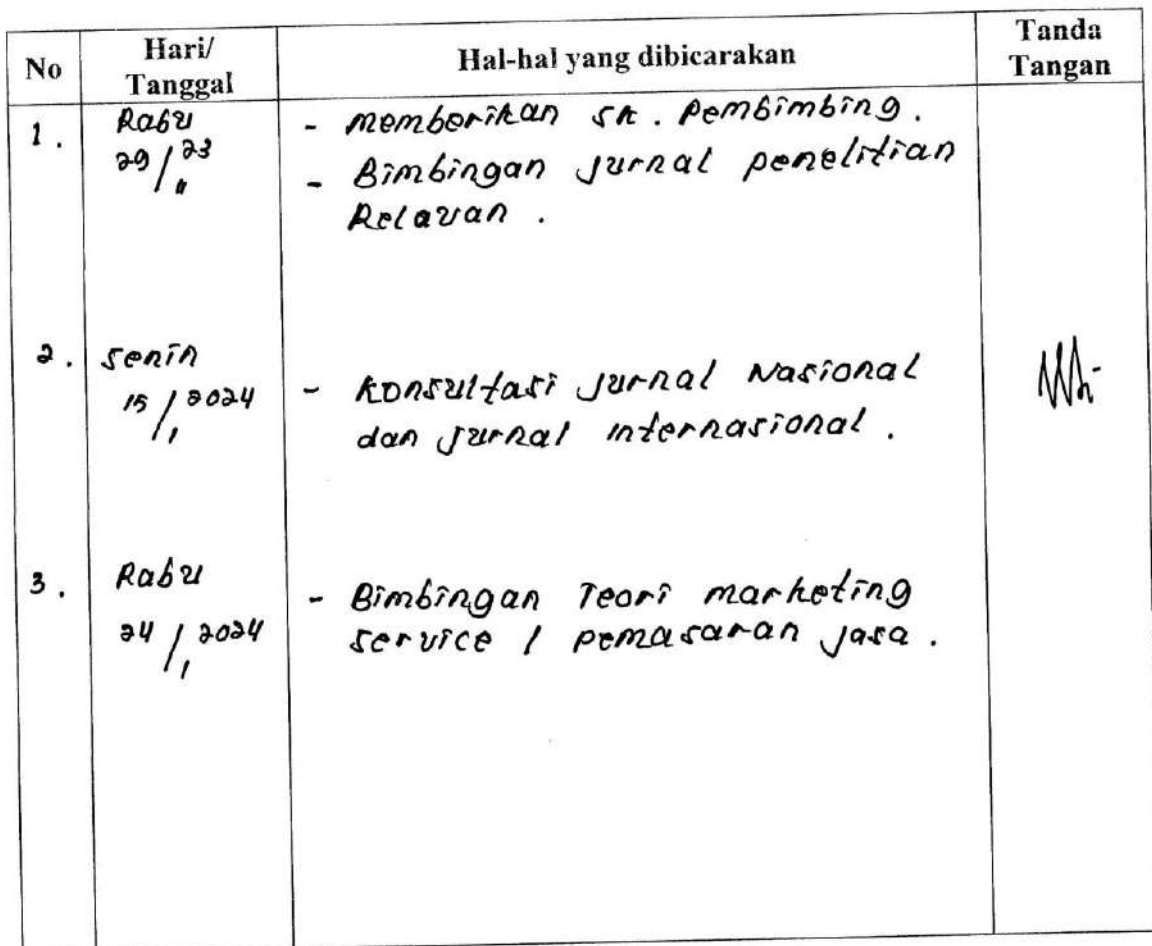 No Hari/ Tanggal Hal-hal yang dibicarakan Tanda Tangan
1. Rabu - memberikan sk. Pembimbing.
29/11 23 - Bimbingan Jurnal penelitian
Relavan.
2. Senin
15/1 2024 - Konsultasi Jurnal Nasional
dan Jurnal internasional.
3. Rabu - Bimbingan Teori marketing
24/1 2024 service / pemasaran Jasa.